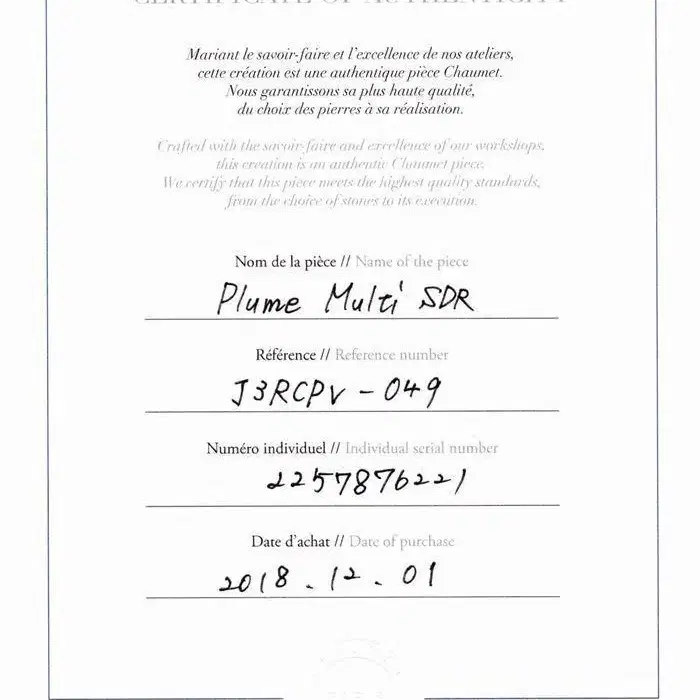 CERTIFICATE OF AUTHENTICITY
Mariant le savoir-faire et l'excellence de nos ateliers,
cette création est une authentique pièce Chaumet.
Nous garantissons sa plus haute qualité,
du choix des pierres à sa réalisation.
Crafted with the savoir-faire and excellence of our workshops,
this creation is an authentic Chaumet piece.
We certify that this piece meets the highest quality standards,
from the choice of stones to its execution.
Nom de la pièce // Name of the piece
Plume Multi SDR
Référence // Reference number
J3RCPV - 049
Numéro individuel // Individual serial number
2257876221
Date d'achat // Date of purchase
2018 . 12 . 01
PARIS